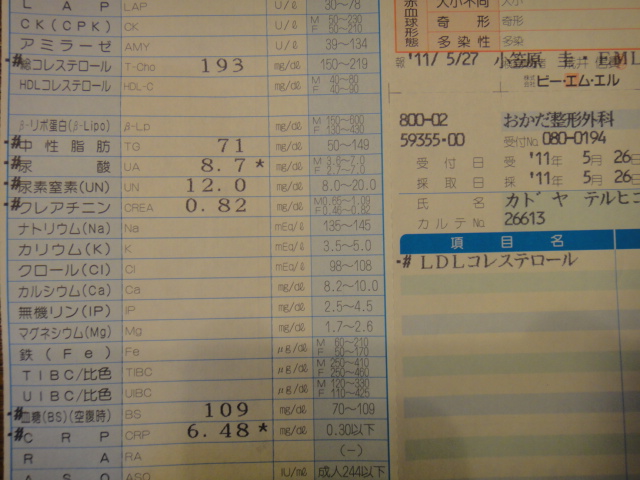 L A P LAP U/ℓ 30〜78
CK(CPK) CK U/ℓ M 50〜230 F 50〜210
アミラーゼ AMY U/ℓ 39〜134
#総コレステロール T-Cho 193 mg/dℓ 150〜219
HDLコレステロール HDL-C mg/dℓ M 40〜80 F 40〜90
β-リポ蛋白(β-Lipo) β-Lp mg/dℓ M 150〜600 F 130〜430
#中性脂肪 TG 71 mg/dℓ 50〜149
#尿酸 UA 8.7* mg/dℓ M 3.6〜7.0 F 2.7〜7.0
#尿素窒素(UN) UN 12.0 mg/dℓ 8.0〜20.0
#クレアチニン CREA 0.82 mg/dℓ M0.65〜1.09 F0.46〜0.82
ナトリウム(Na) Na mEq/ℓ 135〜145
カリウム(K) K mEq/ℓ 3.5〜5.0
クロール(Cl) Cl mEq/ℓ 98〜108
カルシウム(Ca) Ca mg/dℓ 8.2〜10.0
無機リン(IP) IP mg/dℓ 2.5〜4.5
マグネシウム(Mg) Mg mg/dℓ 1.7〜2.6
鉄(Fe) Fe μg/dℓ M 60〜210 F 50〜170
TIBC/比色 TIBC μg/dℓ M 250〜410 F 250〜460
UIBC/比色 UIBC μg/dℓ M 120〜330 F 110〜425
#血糖(BS)(空腹時) BS 109 mg/dℓ 70〜109
#C R P CRP 6.48* mg/dℓ 0.30以下
R A RA (−)
A S O ASO IU/mℓ 成人244以下
赤血球形態 大小不同 大小
奇形 奇形
多染性 多染
報 '11/ 5/27 小笠原 圭 EML
株式会社 ビー・エム・エル
800-02 おかだ整形外科
59355-00 受付No. 080-0194
受付日 受 '11年 5月 26日
採取日 採 '11年 5月 26日
氏名 カドヤ テルヒコ
カルテNo. 26613
項目名
#LDLコレステロール